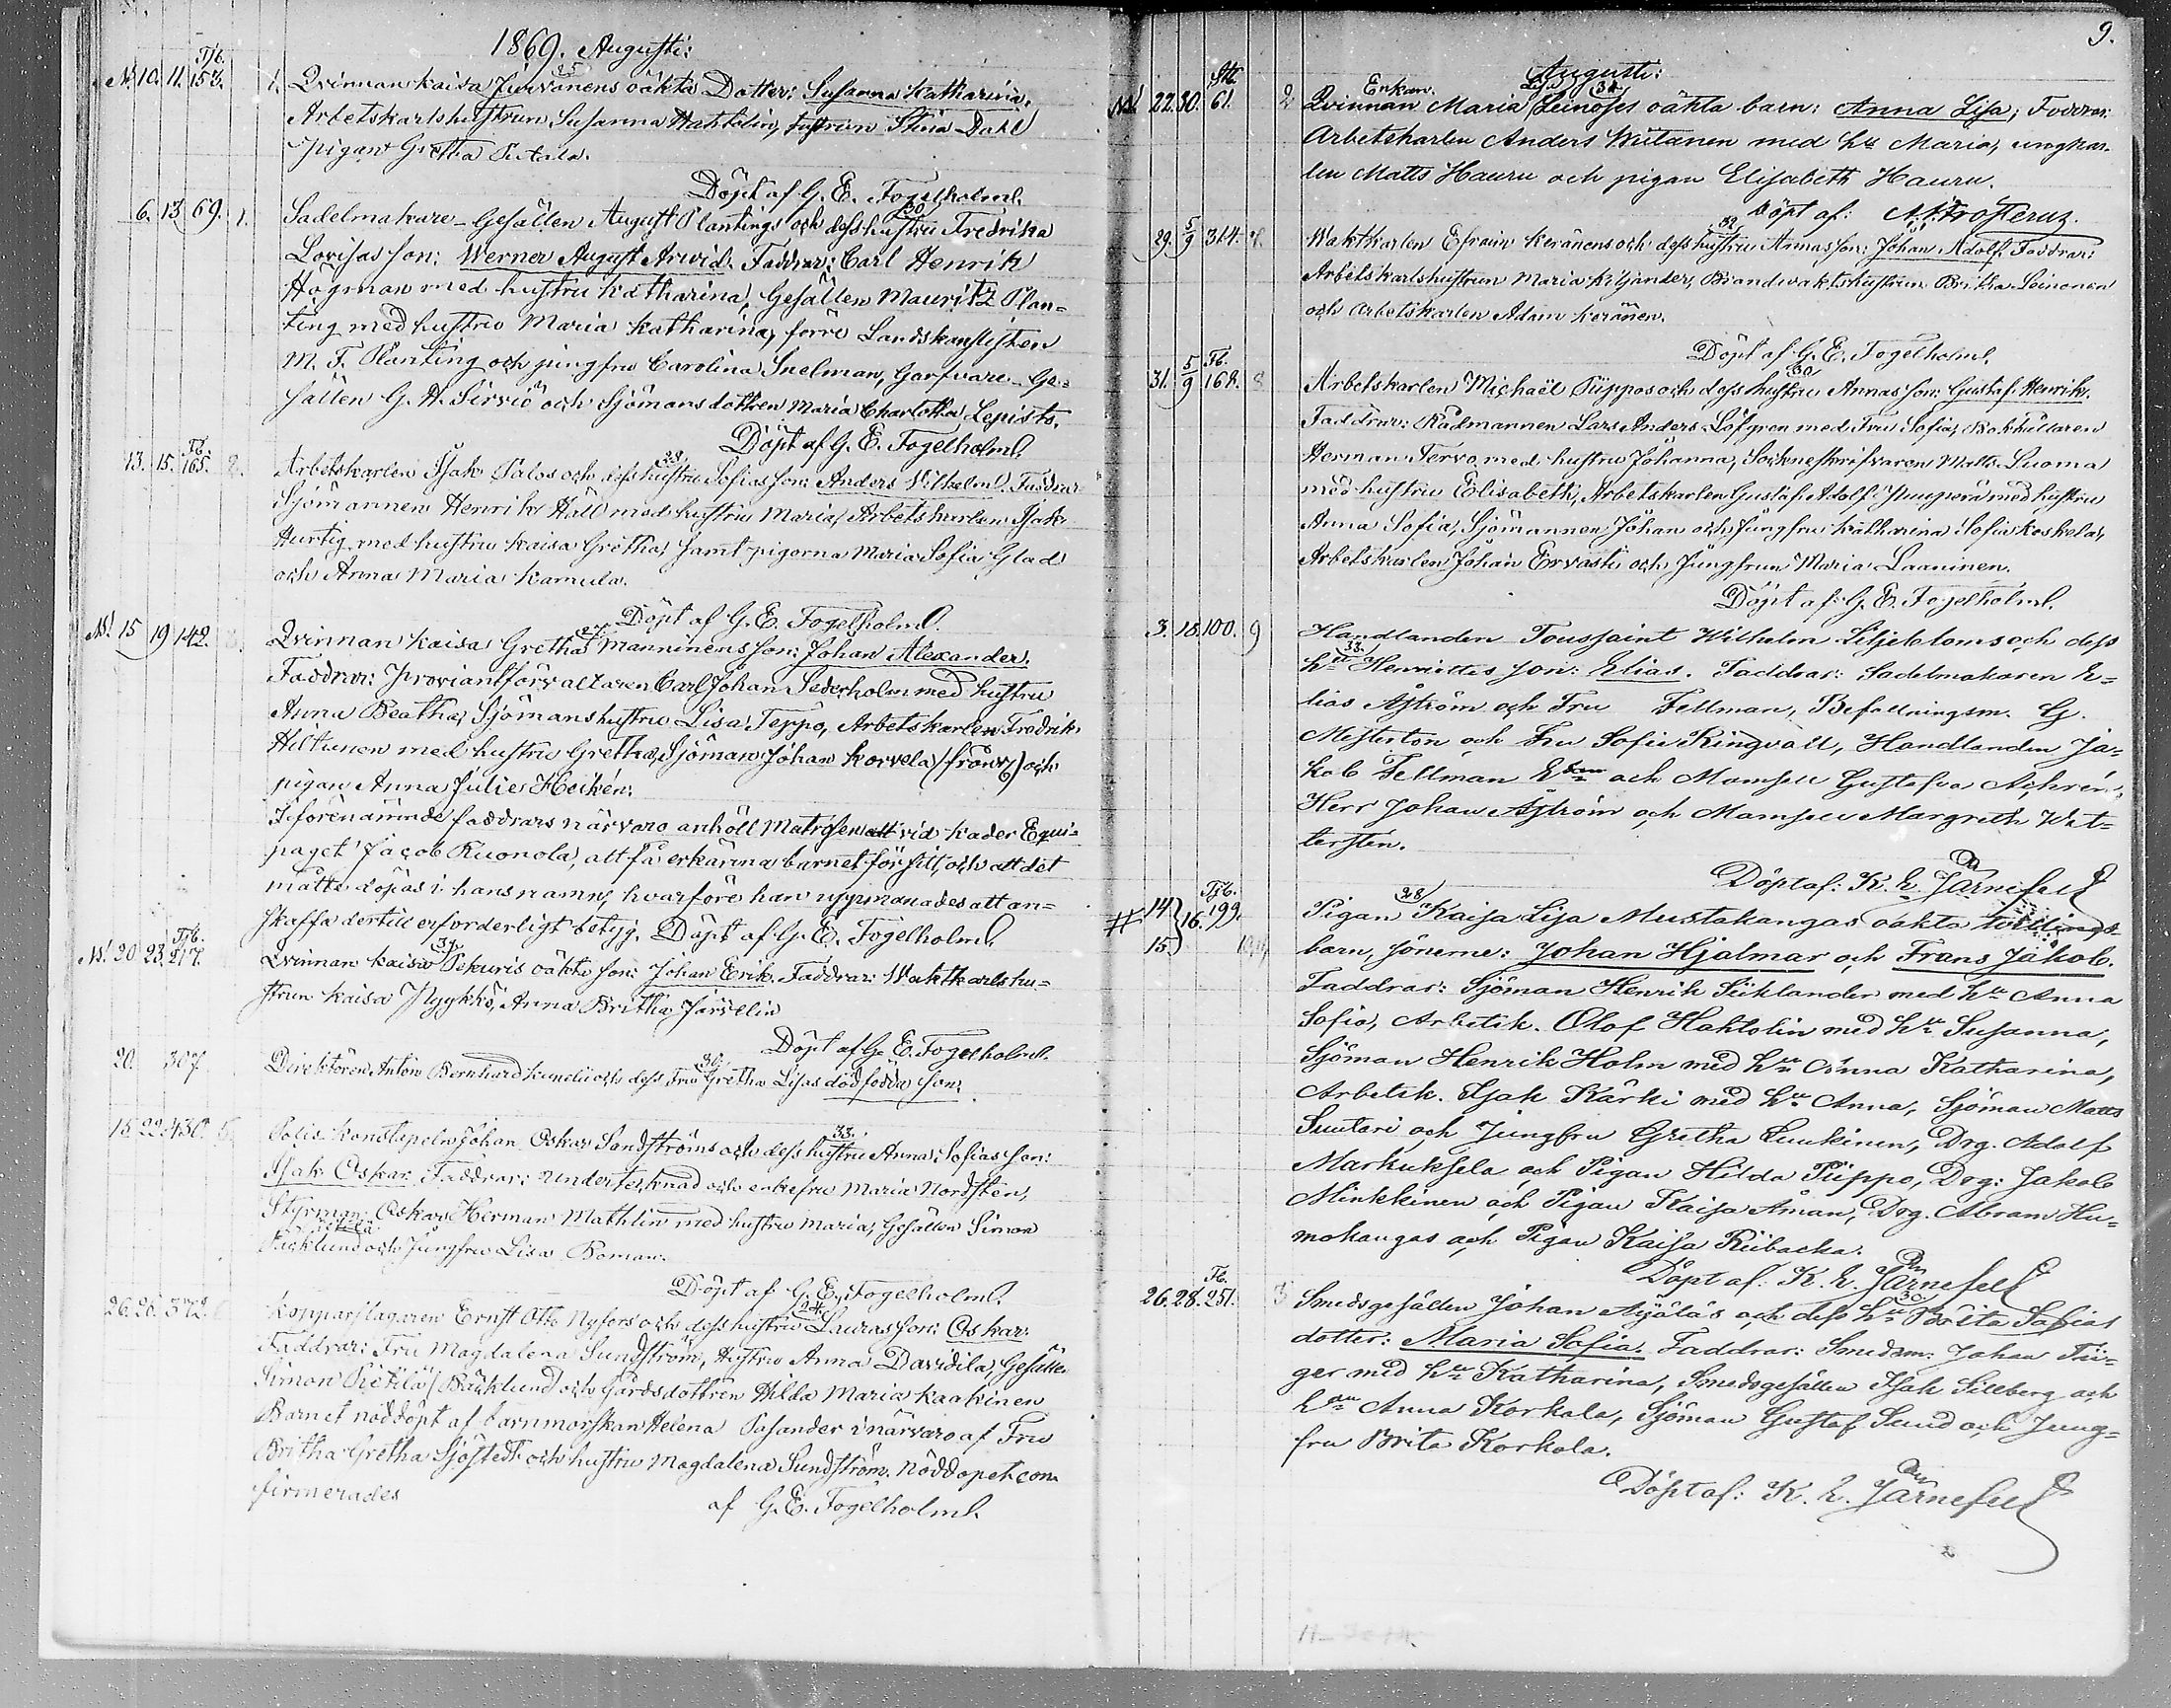 1869. Augusti:
Tjb.
N! 10. 11. 153. 1. Qvinnan Kaisa Jurvanens 25 oäkta Dotter: Susanna Katharina.
Arbetskarlshustrun Susanna Hahtolin, hustrun Stina Dahl
pigan Gretha
Döpt af G. E. Fogelholm.
6. 13 69. 1. Sadelmakare-Gesällen August Plantings och dess hustru 30 Fredrika
Lovisas son: Werner August Arwid. Faddrar: Carl Henrik
Högman med hustru Katharina, Gesällen Mauritz Plan=
ting med hustru Maria Katharina, förre Landskanslisten
M. F. Planting och jungfru Carolina Snelman, Garfvare-Ge=
sällen G. A. Sirviö och Sjömansdottren Maria Charlotta Lepisto.
Döpt af G. E. Fogelholm.
Tb.
13. 15. 165. 2. Arbetskarlen Isak Palos och dess hustru 28 Sofias son: Anders Vilhelm. Faddrar
Sjömannen Henrik Häll med hustru Maria, Arbetskarlen Isak
Hurtig med hustru Kaisa Gretha, samt pigorna Maria Sofia Glad
och Anna Maria Kamula.
Döpt af G. E. Fogelholm.
N! 15 19 142. 3. Qvinnan Kaisa Grethas 27 Manninens son: Johan Alexander.
Faddrar: Proviantförvaltaren Carl Johan Sederholm med hustru
Anna Beatha, Sjömanshustru Lisa Teppo, Arbetskarlen Fredrik
Hiltunen med hustru Gretha, Sjöman Johan Korvela (frånv) och
pigan Anna Julie Heikén.
I förenämnde faddrars närvaro anhöll Matrosen vid Kader Equi=
paget Jacob Kuonola, att få erkänna barnet för sitt, och att det
måtte döpas i hans namn, hvarföre han uppmanades att an=
skaffa dertill erforderligt betyg. Döpt af G. E. Fogelholm.
Tjb.
N! 20 23. 217. Qvinnan Kaisa 31 Pekuris oäkta son: Johan Erik. Faddrar: Waktkarlshu=
strun Kaisa Nyykkö, Anna Britha Järvelin
Döpt af G. E. Fogelholm.
20. 307 Direktören Anton Bernhard Kunelii och dess Fru 36 Gretha Lisas dödfödda son.
15. 22. 430. 5. Poliskonstapeln Johan Oskar Sandströms och dess hustru 33. Anna Sofias son:
Isak Oskar. Faddrar: Undertecknad och enkefru Maria Nordsten,
Styrman Oskar Herman Mathlin med hustru Maria, Gesällen Simon
Bäcklund och Jungfru Lisa Boman.
Döpt af G. E. Fogelholm.
26. 26. 372. Kopparslagaren Ernst Otto Nyfors och dess hustru 24 Lauras son: Oskar.
Faddrar: Fru Magdalena Sundström, Hustru Anna Davidila, Gesällen
Simon Pietilä (Bäcklund) och Gårdsdottren Hilda Maria Kaakinen
Barnet nöddöpt af barnmorskan Helena Pasander i närvaro af Fru
Britha Gretha Sjöstedt och hustru Magdalena Sundström. Nöddopet con
firmerades
af G. E. Fogelholm.
9.
Augusti:
Sth. Enkan. Lisa 34
N! 22. 30. 61. 2 Qvinnan Maria Leinoses oäkta barn: Anna Lisa; Faddrar:
Arbetskarlen Anders Wiitanen med hu Maria, ungkar-
len Matts Hauru och pigan Elisabeth Hauru.
Döpt af: Frosterus.
29. 5/9 314. 7. Waktkarlen Efraim Keränens och dess hustru 32 Annas son: Johan Adolf. Faddrar:
Arbetskarlshustrun Maria Kiljander, Brandvaktshustrun Britha Leinonen
och arbetskarlen Adam Keränen.
Döpt af G. E. Fogelholm.
Tb.
31. 5/9 168. 8 Arbetskarlen Michaël Piippos och dess hustru 30 Annas son: Gustaf Henrik.
Faddrar: Rådmannen Lars Anders Löfgren med Fru Sofia, Bokhållaren
Herman Tervo med hustru Johanna, Sockneskrifvaren Matts Luoma
med hustru Elisabeth, Arbetskarlen Gustaf Adolf Junnperä med hustru
Anna Sofia, Sjömannen Johan och Jungfru Katharina Sofia Koskela,
Arbetskarlen Johan Ervasti och Jungfrun Maria Laaninen.
Döpt af G. E. Fogelholm.
3. 18. 100. 9 Handlanden Toussaint Wilhelm Liljebloms och dess
hu 33. Henriettes son: Elias. Faddrar: Sadelmakaren E=
lias Åström och Fru Fellman, Befallningsm. G.
Mesterton och Fru Sofie Ringvall, Handlanden Ja=
kob Fellman och Mamsell Gustafva Achrén,
Herr Johan Åström och Mamsell Margreth Wet=
tersten.
Döpt af: K. E. Järnefelt
Tjb.
# 14 15. } 16. 199. Pigan 28 Kaisa Lisa Mustakangas oäkta tvillings-
barn, sönerne: Johan Hjalmar och Frans Jakob.
Faddrar: Sjöman Henrik Siiklander med hu Anna
Sofia, Arbetsk. Olof Hahtolin med hu Susanna,
Sjöman Henrik Holm med hu Anna Katharina,
Arbetsk. Isak Kärki med hu Anna, Sjöman Matts
Suutari och Jungfru Gretha Luukinen, Drg. Adolf
Markuksela och Pigan Hilda Piippo, Drg: Jakob
Minkkinen och Pigan Kaisa Åman, Drg. Abram Hu=
mokangas och Pigan Kaisa Riibacka.
Döpt af: K. E. Järnefelt
Tb.
26. 28. 251. 3 Smedsgesällen Johan Nijäläs och dess hu 30 Brita Sofias
dotter: Maria Sofia. Faddrar: Smedsm: Johan Tii=
ger med hu Katharina, Smedsgesällen Isak Silfberg och
hu Anna Korkala, Sjöman Gustaf Sund och Jung=
fru Brita Korkala.
Döpt af: K. E. Järnefelt